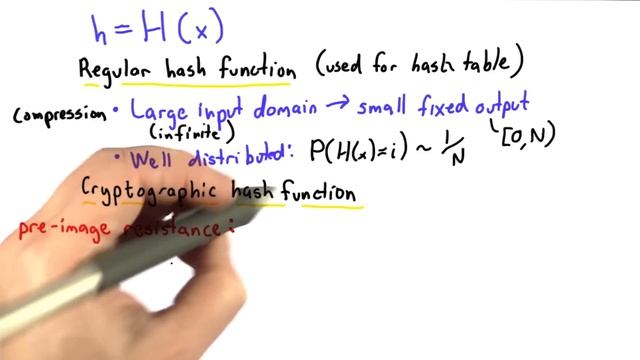 h = H(x)
Regular hash function (used for hash table)
Compression • Large input domain → small fixed output
(infinite) [0, N)
• Well distributed: P(H(x)=i) ~ 1/N
Cryptographic hash function
pre-image resistance: